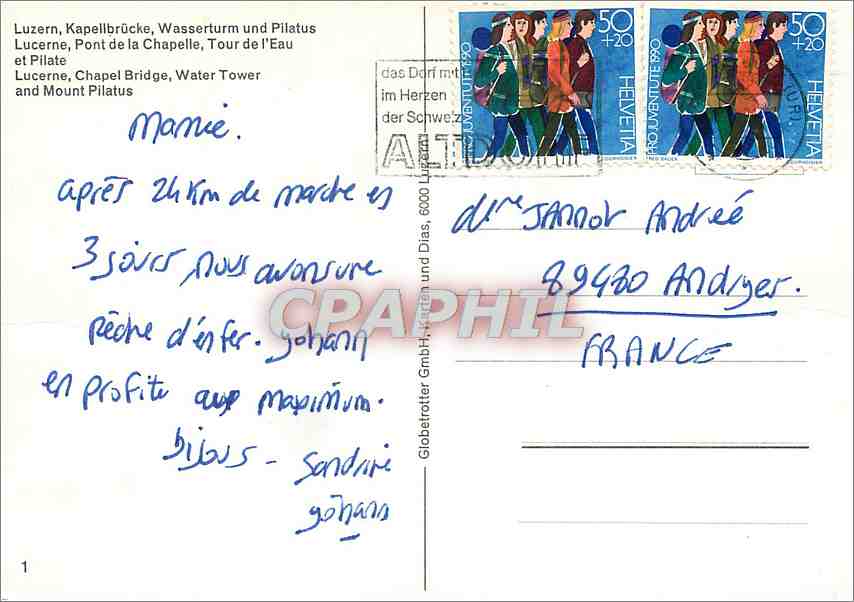 Luzern, Kapellbrücke, Wasserturm und Pilatus
Lucerne, Pont de la Chapelle, Tour de l'Eau
et Pilate
Lucerne, Chapel Bridge, Water Tower
and Mount Pilatus
Mamie.
après 24 Km de marche en
3 jours, nous avons une
pêche d'enfer. Yohann
en profite au maximum.
bijous - Sandrine
Yohann
1
Globetrotter GmbH, Karten und Dias, 6000 Luzern
das Dorf mit
im Herzen
der Schweiz
ALTDORF
50
+20
HELVETIA
PRO JUVENTUTE 1990
50
+20
HELVETIA
PRO JUVENTUTE 1990
Mme JANNOT Andreé
89480 Andryes.
FRANCE
CPAPHIL